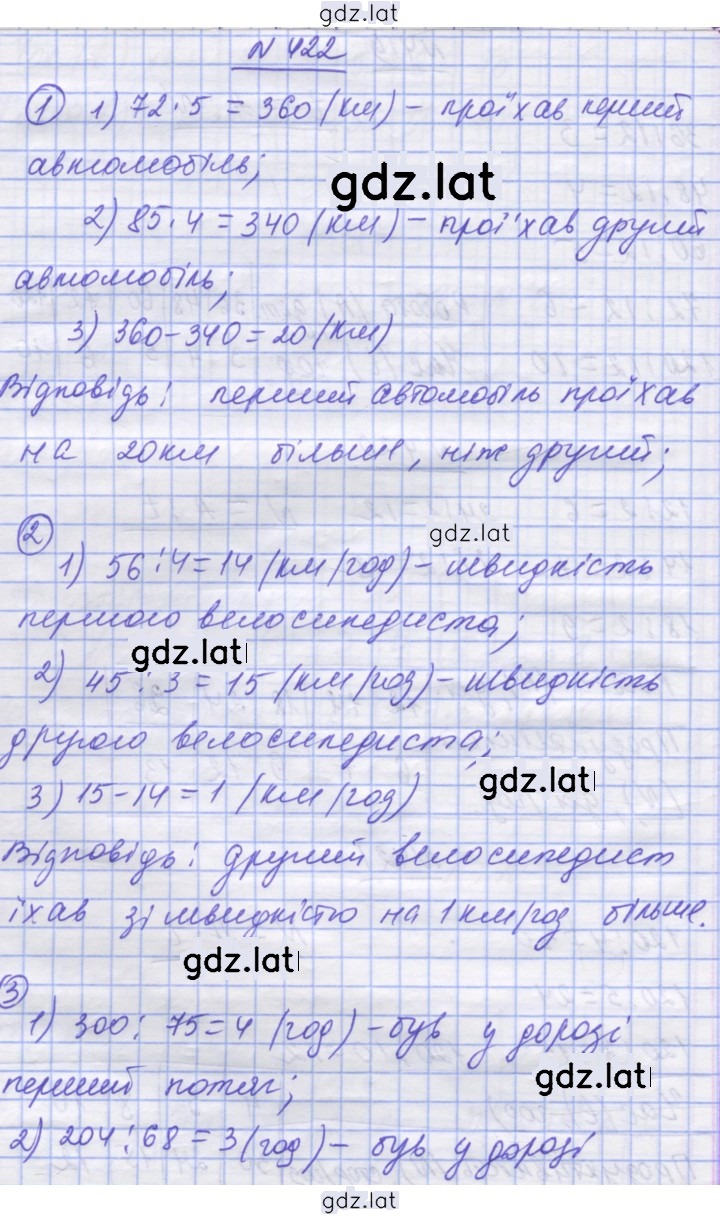 gdz.lat
N 422
① 1) 72 · 5 = 360 (км) – проїхав перший
автомобіль;
gdz.lat
2) 85 · 4 = 340 (км) – проїхав другий
автомобіль;
3) 360 – 340 = 20 (км)
Відповідь: перший автомобіль проїхав
на 20 км більше, ніж другий;
②
gdz.lat
1) 56 : 4 = 14 (км/год) – швидкість
першого велосипедиста;
gdz.lat
2) 45 : 3 = 15 (км/год) – швидкість
другого велосипедиста;
3) 15 – 14 = 1 (км/год)
gdz.lat
Відповідь: другий велосипедист
їхав зі швидкістю на 1 км/год більше.
gdz.lat
③
1) 300 : 75 = 4 (год) – був у дорозі
перший потяг;
gdz.lat
2) 204 : 68 = 3 (год) – був у дорозі
gdz.lat